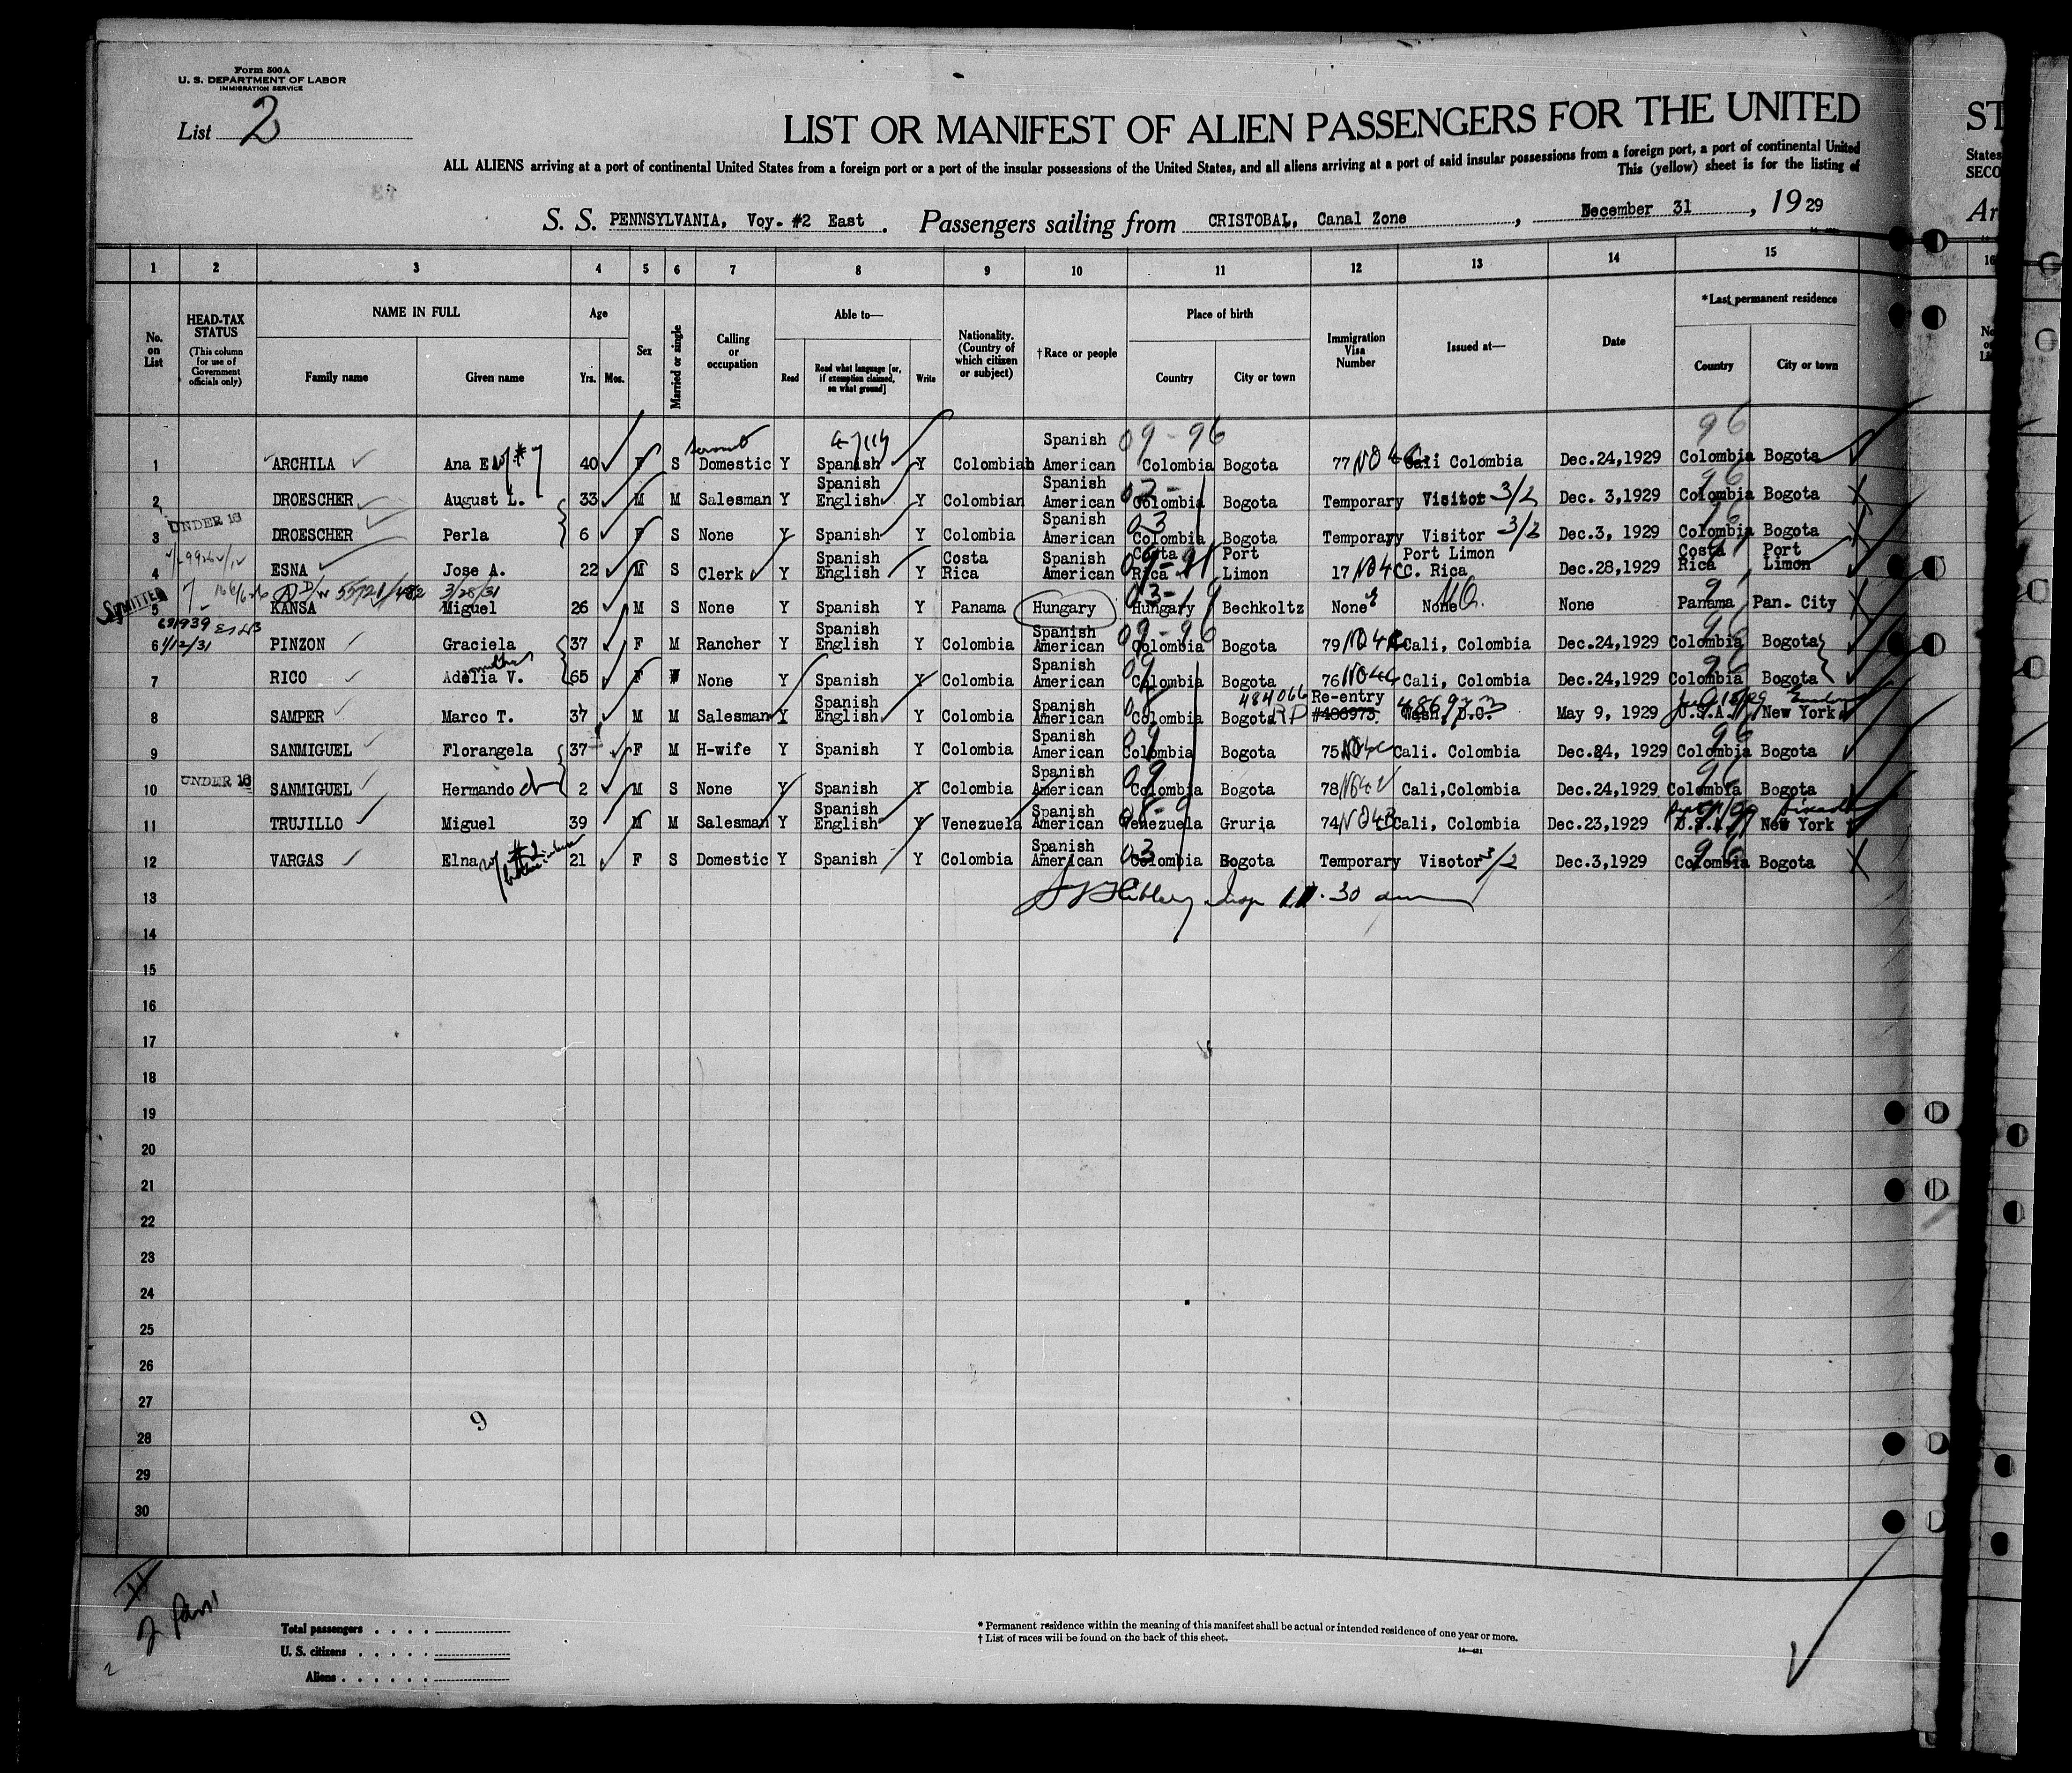 Form 500A
U. S. DEPARTMENT OF LABOR
IMMIGRATION SERVICE
List 2
LIST OR MANIFEST OF ALIEN PASSENGERS FOR THE UNITED
ST
ALL ALIENS arriving at a port of continental United States from a foreign port or a port of the insular possessions of the United States, and all aliens arriving at a port of said insular possessions from a foreign port, a port of continental United
States
This (yellow) sheet is for the listing of
SECO
S. S. PENNSYLVANIA, Voy. #2 East. Passengers sailing from CRISTOBAL, Canal Zone, December 31, 1929
Ar
1 2 3 4 5 6 7 8 9 10 11 12 13 14 15 16
No. on List
HEAD-TAX STATUS (This column for use of Government officials only)
NAME IN FULL
Family name Given name
Age
Yrs. Mos.
Sex
Married or single
Calling or occupation
Able to—
Read Read what language [or, if exemption claimed, on what ground] Write
Nationality. (Country of which citizen or subject)
† Race or people
Place of birth
Country City or town
Immigration Visa Number
Issued at—
Date
*Last permanent residence
Country City or town
1 ARCHILA Ana E w/ #7 40 F S servant Domestic Y Spanish Y Colombian Spanish American 09-96 Colombia Bogota 77 Cali Colombia Dec.24,1929 96 Colombia Bogota
2 DROESCHER August L. 33 M M Salesman Y Spanish English Y Colombian Spanish American Colombia Bogota Temporary Visitor 3/2 Dec. 3,1929 96 Colombia Bogota
UNDER 16
3 DROESCHER Perla 6 F S None Y Spanish Y Colombia Spanish American 03 Colombia Bogota Temporary Visitor 3/2 Dec.3, 1929 96 Colombia Bogota
4 ESNA Jose A. 22 M S Clerk Y Spanish English Y Costa Rica Spanish American Costa Rica Port Limon 17 Port Limon C. Rica Dec.28,1929 Costa Rica Port Limon
3/28/31
5 KANSA Miguel 26 M S None Y Spanish Y Panama Hungary Hungary Bechkoltz None None None Panama Pan. City
6 PINZON Graciela 37 F M Rancher Y Spanish English Y Colombia Spanish American 09-96 Colombia Bogota 79 Cali, Colombia Dec.24,1929 Colombia Bogota
7 RICO Adelia V. mother 65 F W None Y Spanish Y Colombia Spanish American 09 Colombia Bogota 76 Cali, Colombia Dec.24,1929 96 Colombia Bogota
8 SAMPER Marco T. 37 M M Salesman Y Spanish English Y Colombia Spanish American Colombia Bogota 484066 RP Re-entry #486973 486973 Wash, D.C. May 9, 1929 U.S.A. New York
9 SANMIGUEL Florangela 37 F M H-wife Y Spanish Y Colombia Spanish American 09 Colombia Bogota 75 Cali. Colombia Dec.24, 1929 96 Colombia Bogota
UNDER 16
10 SANMIGUEL Hermando ch 2 M S None Y Spanish Y Colombia Spanish American 09 Colombia Bogota 78 Cali,Colombia Dec.24,1929 96 Colombia Bogota
11 TRUJILLO Miguel 39 M M Salesman Y Spanish English Y Venezuela Spanish American Venezuela Gruria 74 Cali, Colombia Dec.23,1929 U.S.A. New York
12 VARGAS Elna w/ #2 21 F S Domestic Y Spanish Y Colombia Spanish American 03 Colombia Bogota Temporary Visotor 3/2 Dec.3,1929 96 Colombia Bogota
13
14
15
16
17
18
19
20
21
22
23
24
25
26
27
28
29
30
9
Total passengers
U. S. citizens
Aliens
* Permanent residence within the meaning of this manifest shall be actual or intended residence of one year or more.
† List of races will be found on the back of this sheet.
14—421